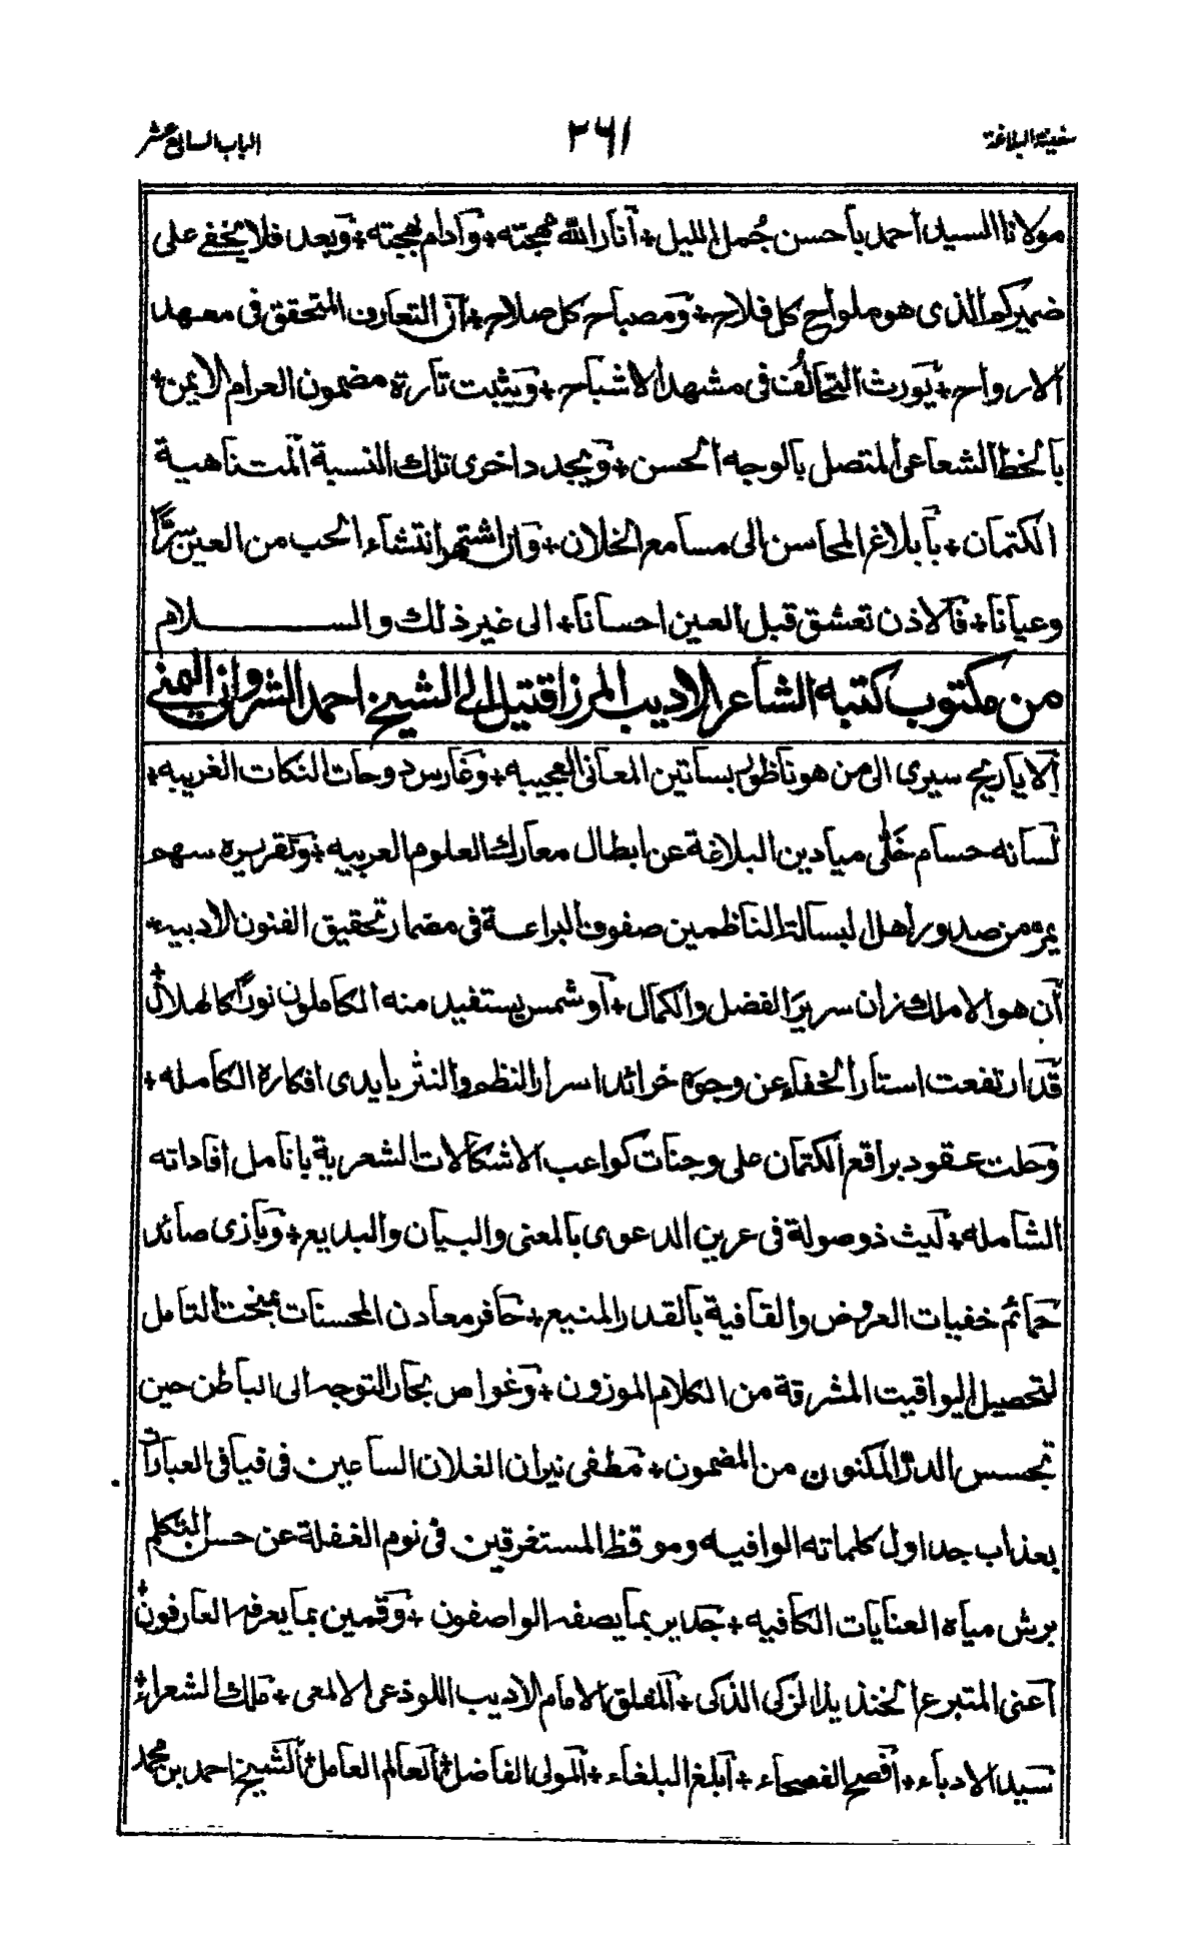 سفينة البلاغة ٣٤١ الباب السابع عشر
مولانا السيد احمد باحسن جُمل الليل + أنار الله مهجته + وآدام بهجته + وبعد فلا يخفى على
ضميركم الذى هو ملواح كل فلاح + ومصباح كل صلاح + ان التعارف المتحقق فى معهد
الارواح + يورث التحالف فى مشهد الاشباح + ويثبت تارة مضمون الغرام الايمن +
بالخط الشعاعى المتصل بالوجه الحسن + ويجدد اخرى تلك النسبة المتناهية
الكتمان + بأبلاغ المحاسن الى مسامع الخلان + وان اشتهر انتشاء الحب من العين سرًّا
وعيانا + فالاذن تعشق قبل العين احسانا + الى غير ذلك والسلام
من مكتوب كتبه الشاعر الاديب المرزا قتيل الى الشيخ احمد الشروانى اليمنى
الا يا ريح سيرى الى من هو ناظور بساتين المعانى العجيبه + وغارس دوحات النكات الغريبه +
لسانه حسام خَلّى ميادين البلاغة عن ابطال معارك العلوم العربيه + وتقريره سهم
يمرّ من صدور اهل البسالة الناظمين صفوف البراعة فى مضمار تحقيق الفنون الادبيه +
أن هو الا ملك زان سريرَ الفضل والكمال + أو شمس يستفيد منه الكاملون نورًا كالهلال +
قد ارتفعت استار الخفاء عن وجوه خرائد اسرار النظم والنثر بايدى افكاره الكامله +
وحلت عقود براقع الكتمان على وجنات كواعب الاشكالات الشعرية بانامل افاداته
الشامله + ليث ذو صولة فى عرين الدعوى بالمعنى والبيان والبديع + وبازى صائد
حمائم خفيات العروض والقافية بالقدر المنيع + حافر معادن المحسنات بمنحت التامل
لتحصيل اليواقيت المشرقة من الكلام الموزون + وغواص بحار التوجه الى الباطن حين
تجسس الدرّ المكنون من المضمون + مطفى نيران الغلان الساعين فى فيافى العبارات
بعذاب جداول كلماته الوافيه وموقظ المستغرقين فى نوم الغفلة عن حسن التكلم
برش مياه العنايات الكافيه + جدير بما يصفه الواصفون + وقمين بما يعرفه العارفون +
آعنى المتبرع الخنذيذ الزكى الذكى + المفلق الامام الاديب اللوذعى الالمعى + ملك الشعراء +
سيد الادباء + أفصح الفصحاء + آبلغ البلغاء + المولى الفاضل + العالم العامل + الشيخ احمد بن محمد